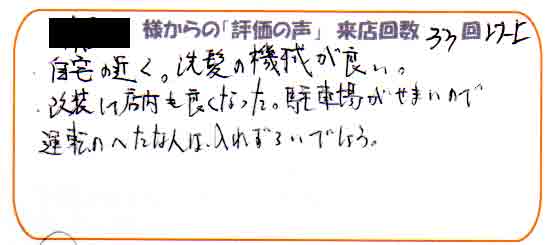 様からの「評価の声」 来店回数 33回以上
・自宅の近く。洗髪の機械が良い。
・改装して店内も良くなった。駐車場がせまいので
運転のへたな人は、入れずらいでしょう。